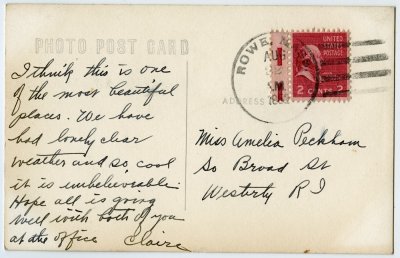 PHOTO POST CARD
I think this is one
of the most beautiful
places. We have
had lovely clear
weather and so cool
it is unbelievable.
Hope all is going
well with both of you
at the office
Claire
ROWE,
AUG
UNITED
STATES
POSTAGE
2 CENTS 2
ADDRESS
Miss Amelia Peckham
So Broad St
Westerly R I